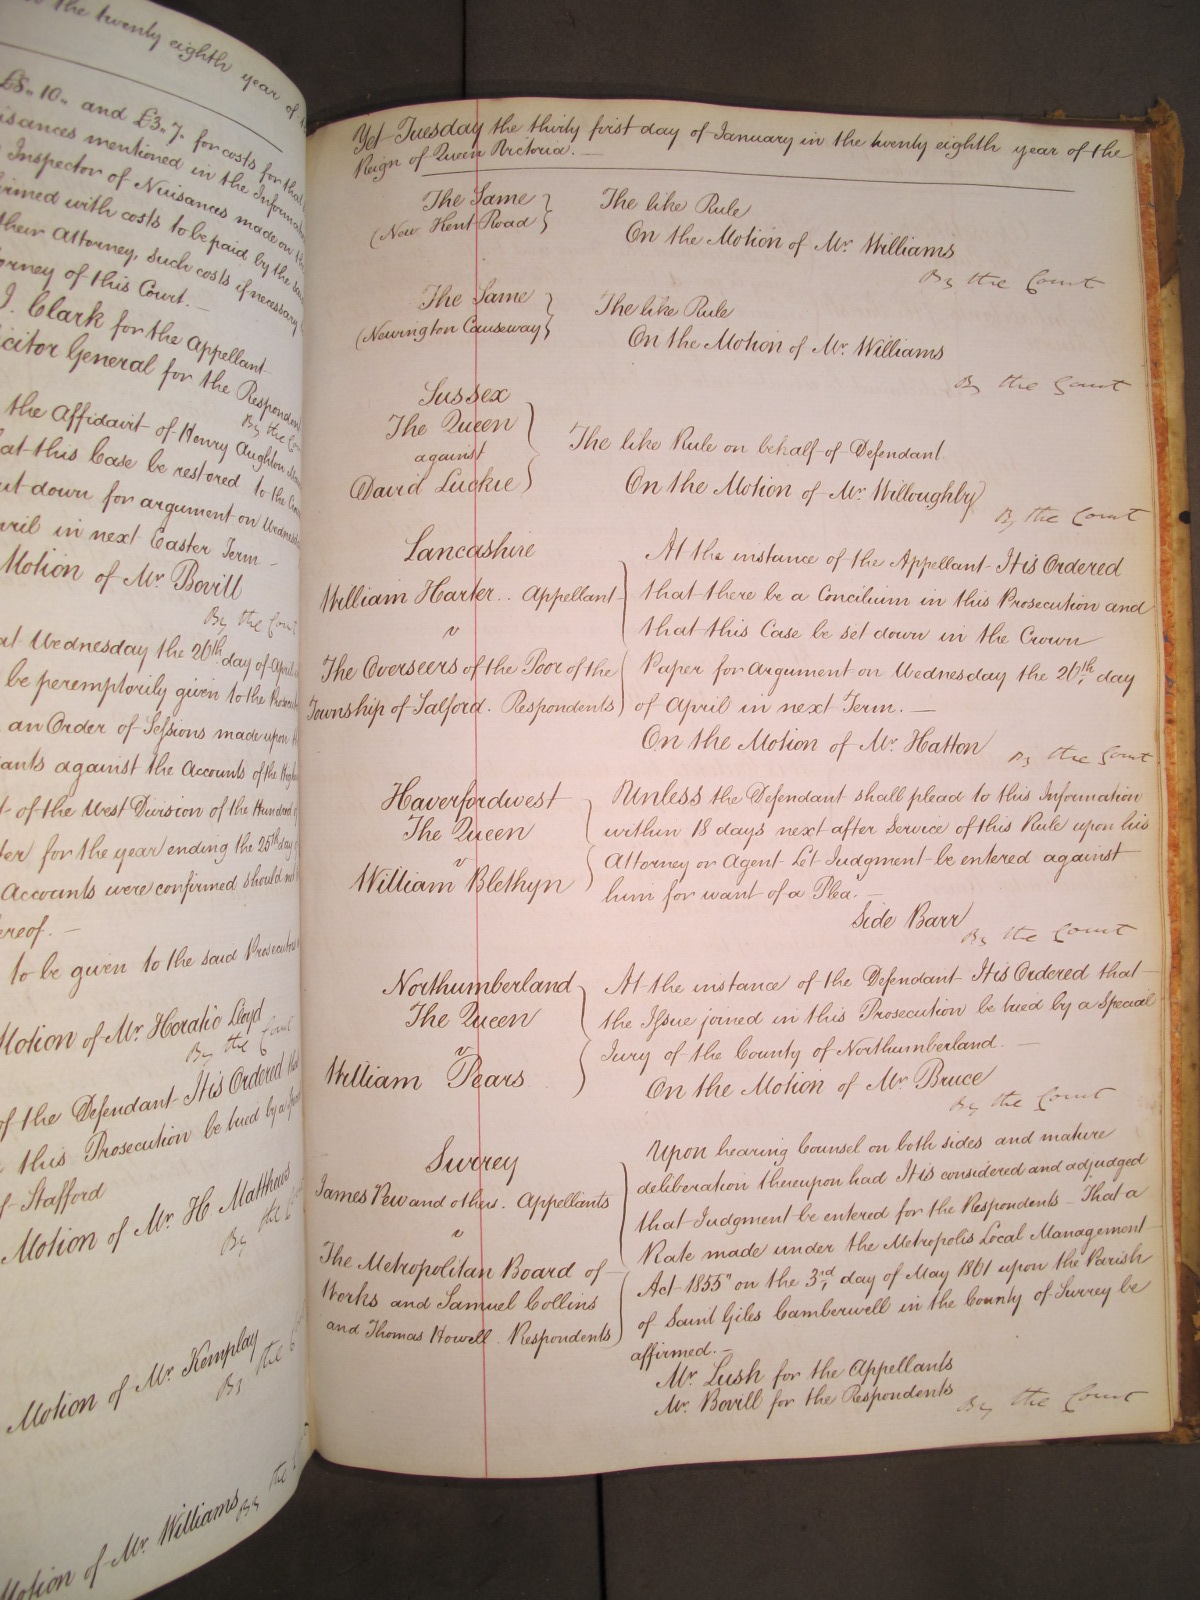 the twenty eighth year of
£8,, 10,, and £3,, 7,, for costs for that
mentioned in the
Inspector of Nuisances made on
with costs to be paid by the
their Attorney, such costs if necessary
of this Court. —
J. Clark for the Appellant
General for the
By the
the Affidavit of Henry Aughton
at this Case be restored to the
down for argument on
in next Easter Term —
Motion of Mr. Bovill
By the Court
Wednesday the 26th day of April
be peremptorily given to the
an Order of Sessions made upon
against the Accounts of the
of the West Division of the Hundred of
for the year ending the 25th day
Accounts were confirmed should not
to be given to the said
Motion of Mr. Horatio Lloyd
By the Court
of the Defendant It is Ordered
this Prosecution be tried by a
of Stafford
Motion of Mr. H. Matthews
By the
Motion of Mr. Kemplay
By the
Motion of Mr. Williams
By the
Yet Tuesday the thirty first day of January in the twenty eighth year of the
Reign of Queen Victoria. —
The Same
(New Kent Road
The like Rule
On the Motion of Mr. Williams
By the Court
The Same
(Newington Causeway
The like Rule
On the Motion of Mr. Williams
By the Court
Sussex
The Queen
against
David Luckie
The like Rule on behalf of Defendant
On the Motion of Mr. Willoughby
By the Court
Lancashire
William Harter .. Appellant
v
The Overseers of the Poor of the
Township of Salford. Respondents
At the instance of the Appellant It is Ordered
that there be a Concilium in this Prosecution and
that this Case be set down in the Crown
Paper for Argument on Wednesday the 26th day
of April in next Term. —
On the Motion of Mr. Hatton
By the Court
Haverfordwest
The Queen
v
William Blethyn
Unless the Defendant shall plead to this Information
within 18 days next after Service of this Rule upon his
Attorney or Agent Let Judgment be entered against
him for want of a Plea. —
Side Barr
By the Court
Northumberland
The Queen
v
William Pears
At the instance of the Defendant It is Ordered that
the Issue joined in this Prosecution be tried by a Special
Jury of the County of Northumberland. —
On the Motion of Mr Bruce
By the Court
Surrey
James Pew and others. Appellants
v
The Metropolitan Board of
Works and Samuel Collins
and Thomas Howell. Respondents
Upon hearing Counsel on both sides and mature
deliberation thereupon had It is considered and adjudged
that Judgment be entered for the Respondents – That a
Rate made under the Metropolis Local Management
Act 1855" on the 3rd day of May 1861 upon the Parish
of Saint Giles Camberwell in the County of Surrey be
affirmed. —
Mr. Lush for the Appellants
Mr. Bovill for the Respondents
By the Court